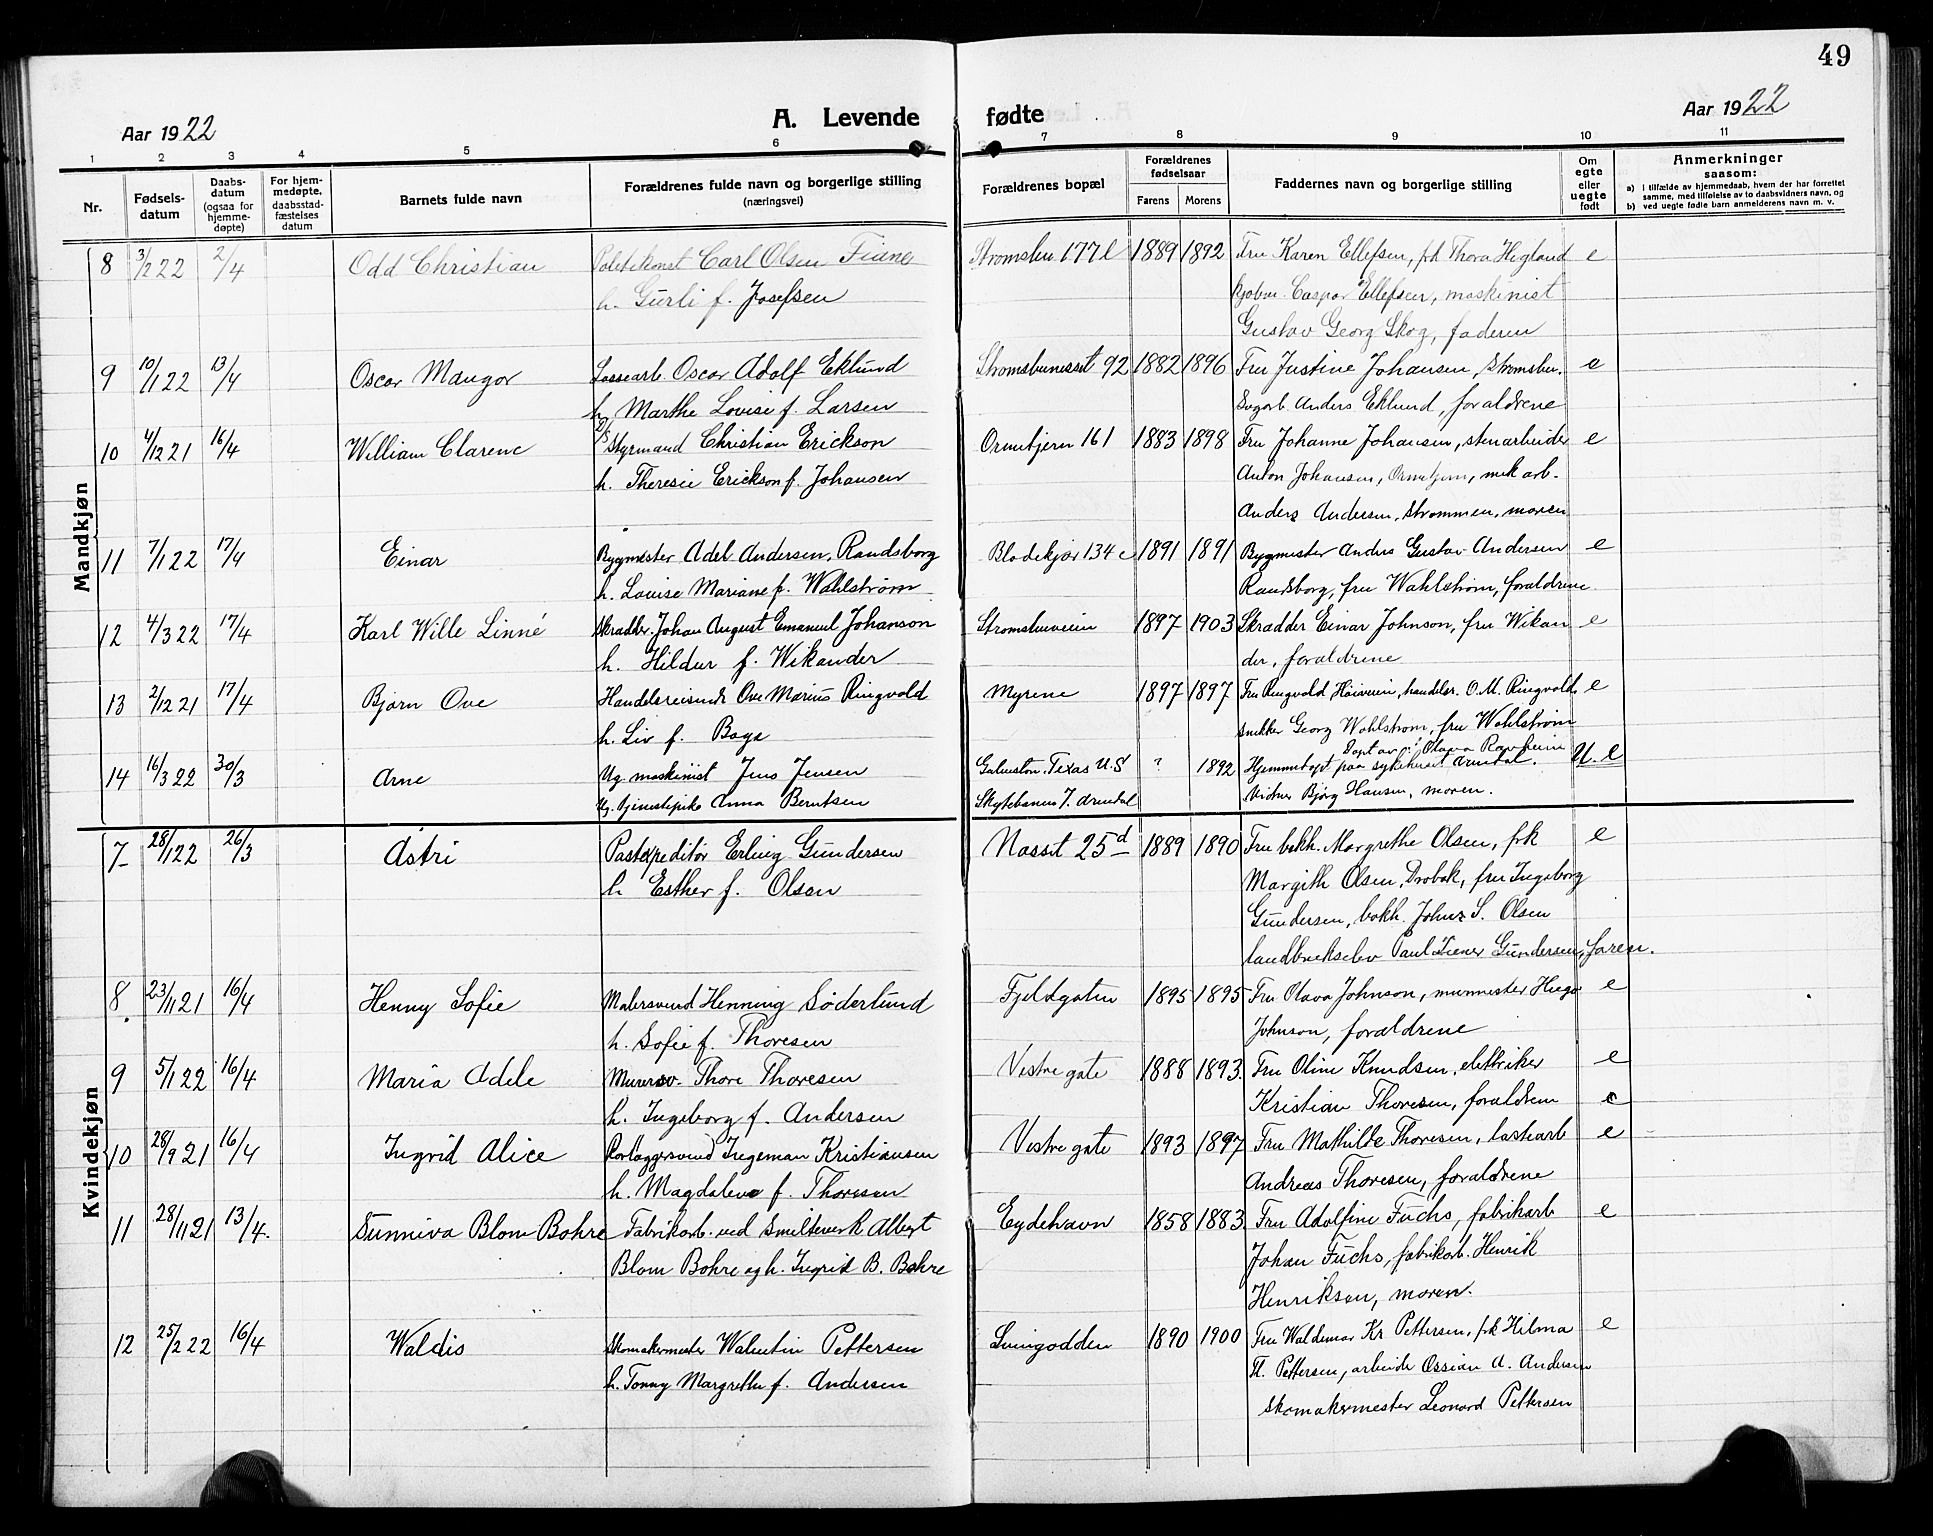 49
Aar 1922
A. Levende fødte
Aar 1922
1 2 3 4 5 6 7 8 9 10 11
Nr.
Fødsels-
datum
Daabs-
datum
(ogsaa for
hjemme-
døpte)
For hjem-
medøpte,
daabsstad-
fæstelses
datum
Barnets fulde navn
Forældrenes fulde navn og borgerlige stilling
(næringsvei)
Forældrenes bopæl
Forældrenes
fødselsaar
Farens Morens
Faddernes navn og borgerlige stilling
Om
egte
eller
uegte
født
Anmerkninger
saasom:
a) i tilfælde av hjemmedaab, hvem der har forrettet
samme, med tilføielse av to daabsvidners navn, og
b) ved uegte fødte barn anmelderens navn m. v.
Mandkjøn
8 3/2 22 2/4 Odd Christian Politikonst Carl Olsen Fiane Strømsbu 177 l 1889 1892 Fru Karen Ellefsen, frk Thora Hegland e
h. Gurli f. Josefsen Caspar Ellefsen, maskinist
Gustav Georg Skog, faderen
9 10/1 22 13/4 Oscar Maugor Lossearb. Oscar Adolf Eklund Strømsbunesset 92 1882 1896 Fru Justine Johansen, Strømsbu. e
h. Marthe Lovise f. Larsen Anders Eklund, forældrene
10 4/12 21 16/4 William Clarenc Styrmand Christian Erickson Ormetjern 161 1883 1898 Fru Johanne Johansen, stenarbeider e
h. Theresie Erickson f. Johansen Anton Johansen, Ormetjern, mek arb.
Anders Andersen, Strømmen, moren
11 7/1 22 17/4 Einar Bygmester Adel Andersen Randsborg Blødekjær 134 c 1891 1891 Bygmester Anders Gustav Andersen e
h. Louise Mariane f. Wahlstrøm Randsborg, fru Wahlstrøm, forældrene
12 4/3 22 17/4 Karl Wille Linné Skrædder Johan August Emanuel Johanson Strømsbuveien 1897 1903 Skrædder Einar Johnson, fru Wikan e
h. Hildur f. Wikander der, forældrene
13 2/12 21 17/4 Bjørn Ove Handelsreisende Ove Marius Ringvold Myrene 1897 1897 Fru Ringvold Høiveien, handelsr. O. M. Ringvold e
h. Liv f. Boge snekker Georg Wahlstrøm, fru Wahlstrøm
Døpt av Olava Ravnheim
14 16/3 22 30/3 Arne Ug. maskinist Jens Jensen Galveston, Texas U.S ? 1892 Hjemmedøpt paa sykehuset Arendal. U. e
Ug. tjenestepike Anna Berntsen Skytebanen 7. Arendal Vidner Bjørg Hansen, moren.
Kvindekjøn
7 28/1 22 26/3 Astri Postexpeditør Erling Gundersen Næsset 25 d 1889 1890 Fru bokh. Margrethe Olsen, frk e
h Esther f. Olsen Margith Olsen, Drøbak, fru Ingeborg
Gundersen, bokh. Johns S. Olsen
landbrukselev Paul Gundersen, faren.
8 23/11 21 16/4 Henny Sofie Malersvend Henning Söderlund Fjeldgaten 1895 1895 Fru Olava Johnson, murmester Hugo e
h. Sofie f. Thoresen Johnson, forældrene
9 5/1 22 16/4 Maria Adele Murersv. Thore Thoresen Vestre gate 1888 1893 Fru Oline Knudsen, elektriker e
h. Ingeborg f. Andersen Kristian Thoresen, forældrene e
10 28/9 21 16/4 Ingrid Alice Rørlæggersvend Ingeman Kristiansen Vestre gate 1893 1897 Fru Mathilde Thoresen, lastearb e
h. Magdalene f. Thoresen Andreas Thoresen, forældrene
11 28/11 21 13/4. Sunniva Blom Bohre Fabrikarb. ved Smelteverk Albert Eydehavn 1858 1883 Fru Adolfine Fuchs, fabrikarb e
Blom Bohre og h. Ingrid B. Bohre Johan Fuchs, fabrikarb. Henrik
Henriksen, moren.
12 25/2 22 16/4 Waldis Skomakermester Walentin Pettersen Lunigodden 1890 1900 Fru Waldemar Kr Pettersen, frk Hilma e
h. Tonny Margrethe f. Andersen Th. Pettersen, arbeider Ossian A. Andersen
skomakermester Leonard Pettersen